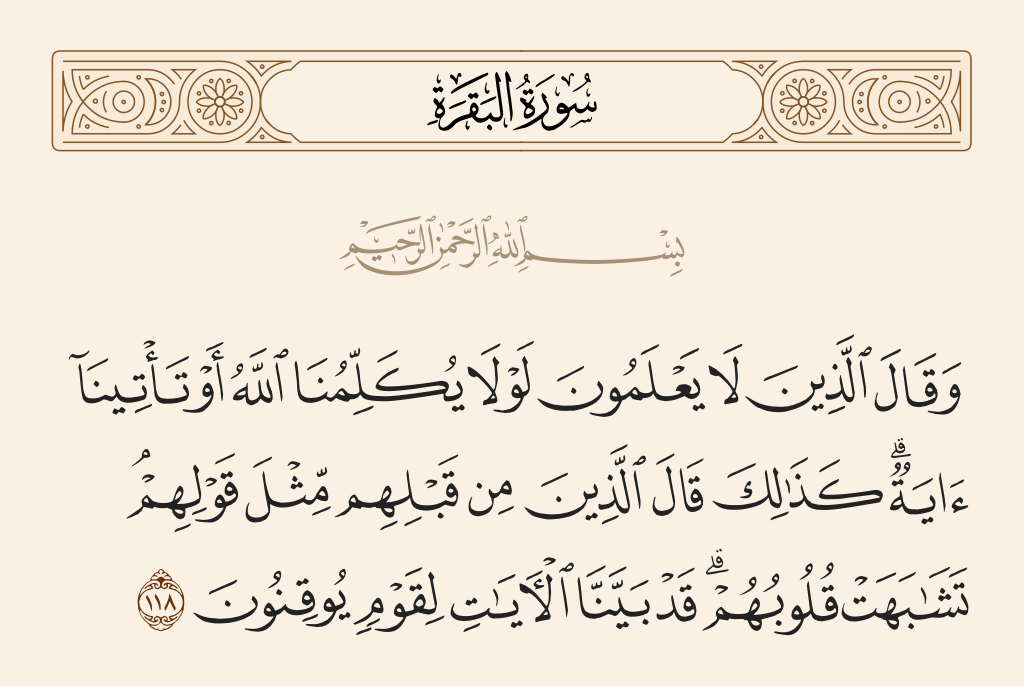 سُورَةُ البَقَرَةِ
بِسْمِ ٱللَّهِ ٱلرَّحْمَٰنِ ٱلرَّحِيمِ
وَقَالَ ٱلَّذِينَ لَا يَعْلَمُونَ لَوْلَا يُكَلِّمُنَا ٱللَّهُ أَوْ تَأْتِينَآ
ءَايَةٌۗ كَذَٰلِكَ قَالَ ٱلَّذِينَ مِن قَبْلِهِم مِّثْلَ قَوْلِهِمْۘ
تَشَٰبَهَتْ قُلُوبُهُمْۗ قَدْ بَيَّنَّا ٱلْأَيَٰتِ لِقَوْمٍ يُوقِنُونَ ١١٨